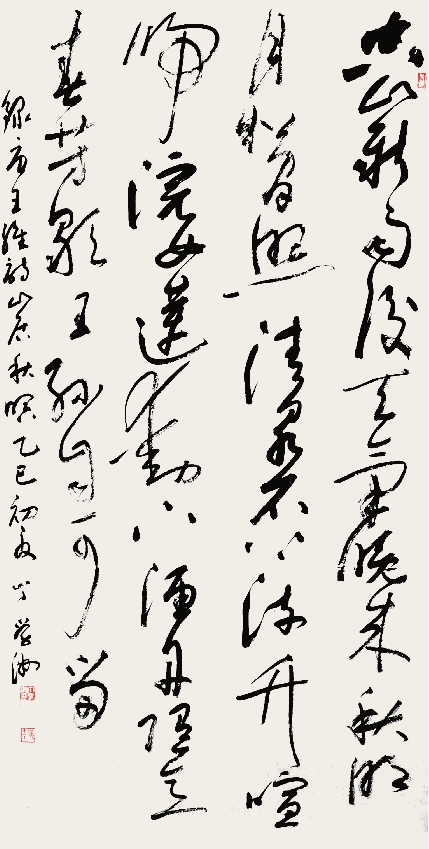 空山新雨後天氣晚來秋明
月松間照清泉石上流竹喧
歸浣女蓮動下漁舟隨意
春芳歇王孫自可留
錄唐王維詩山居秋暝乙巳初夏